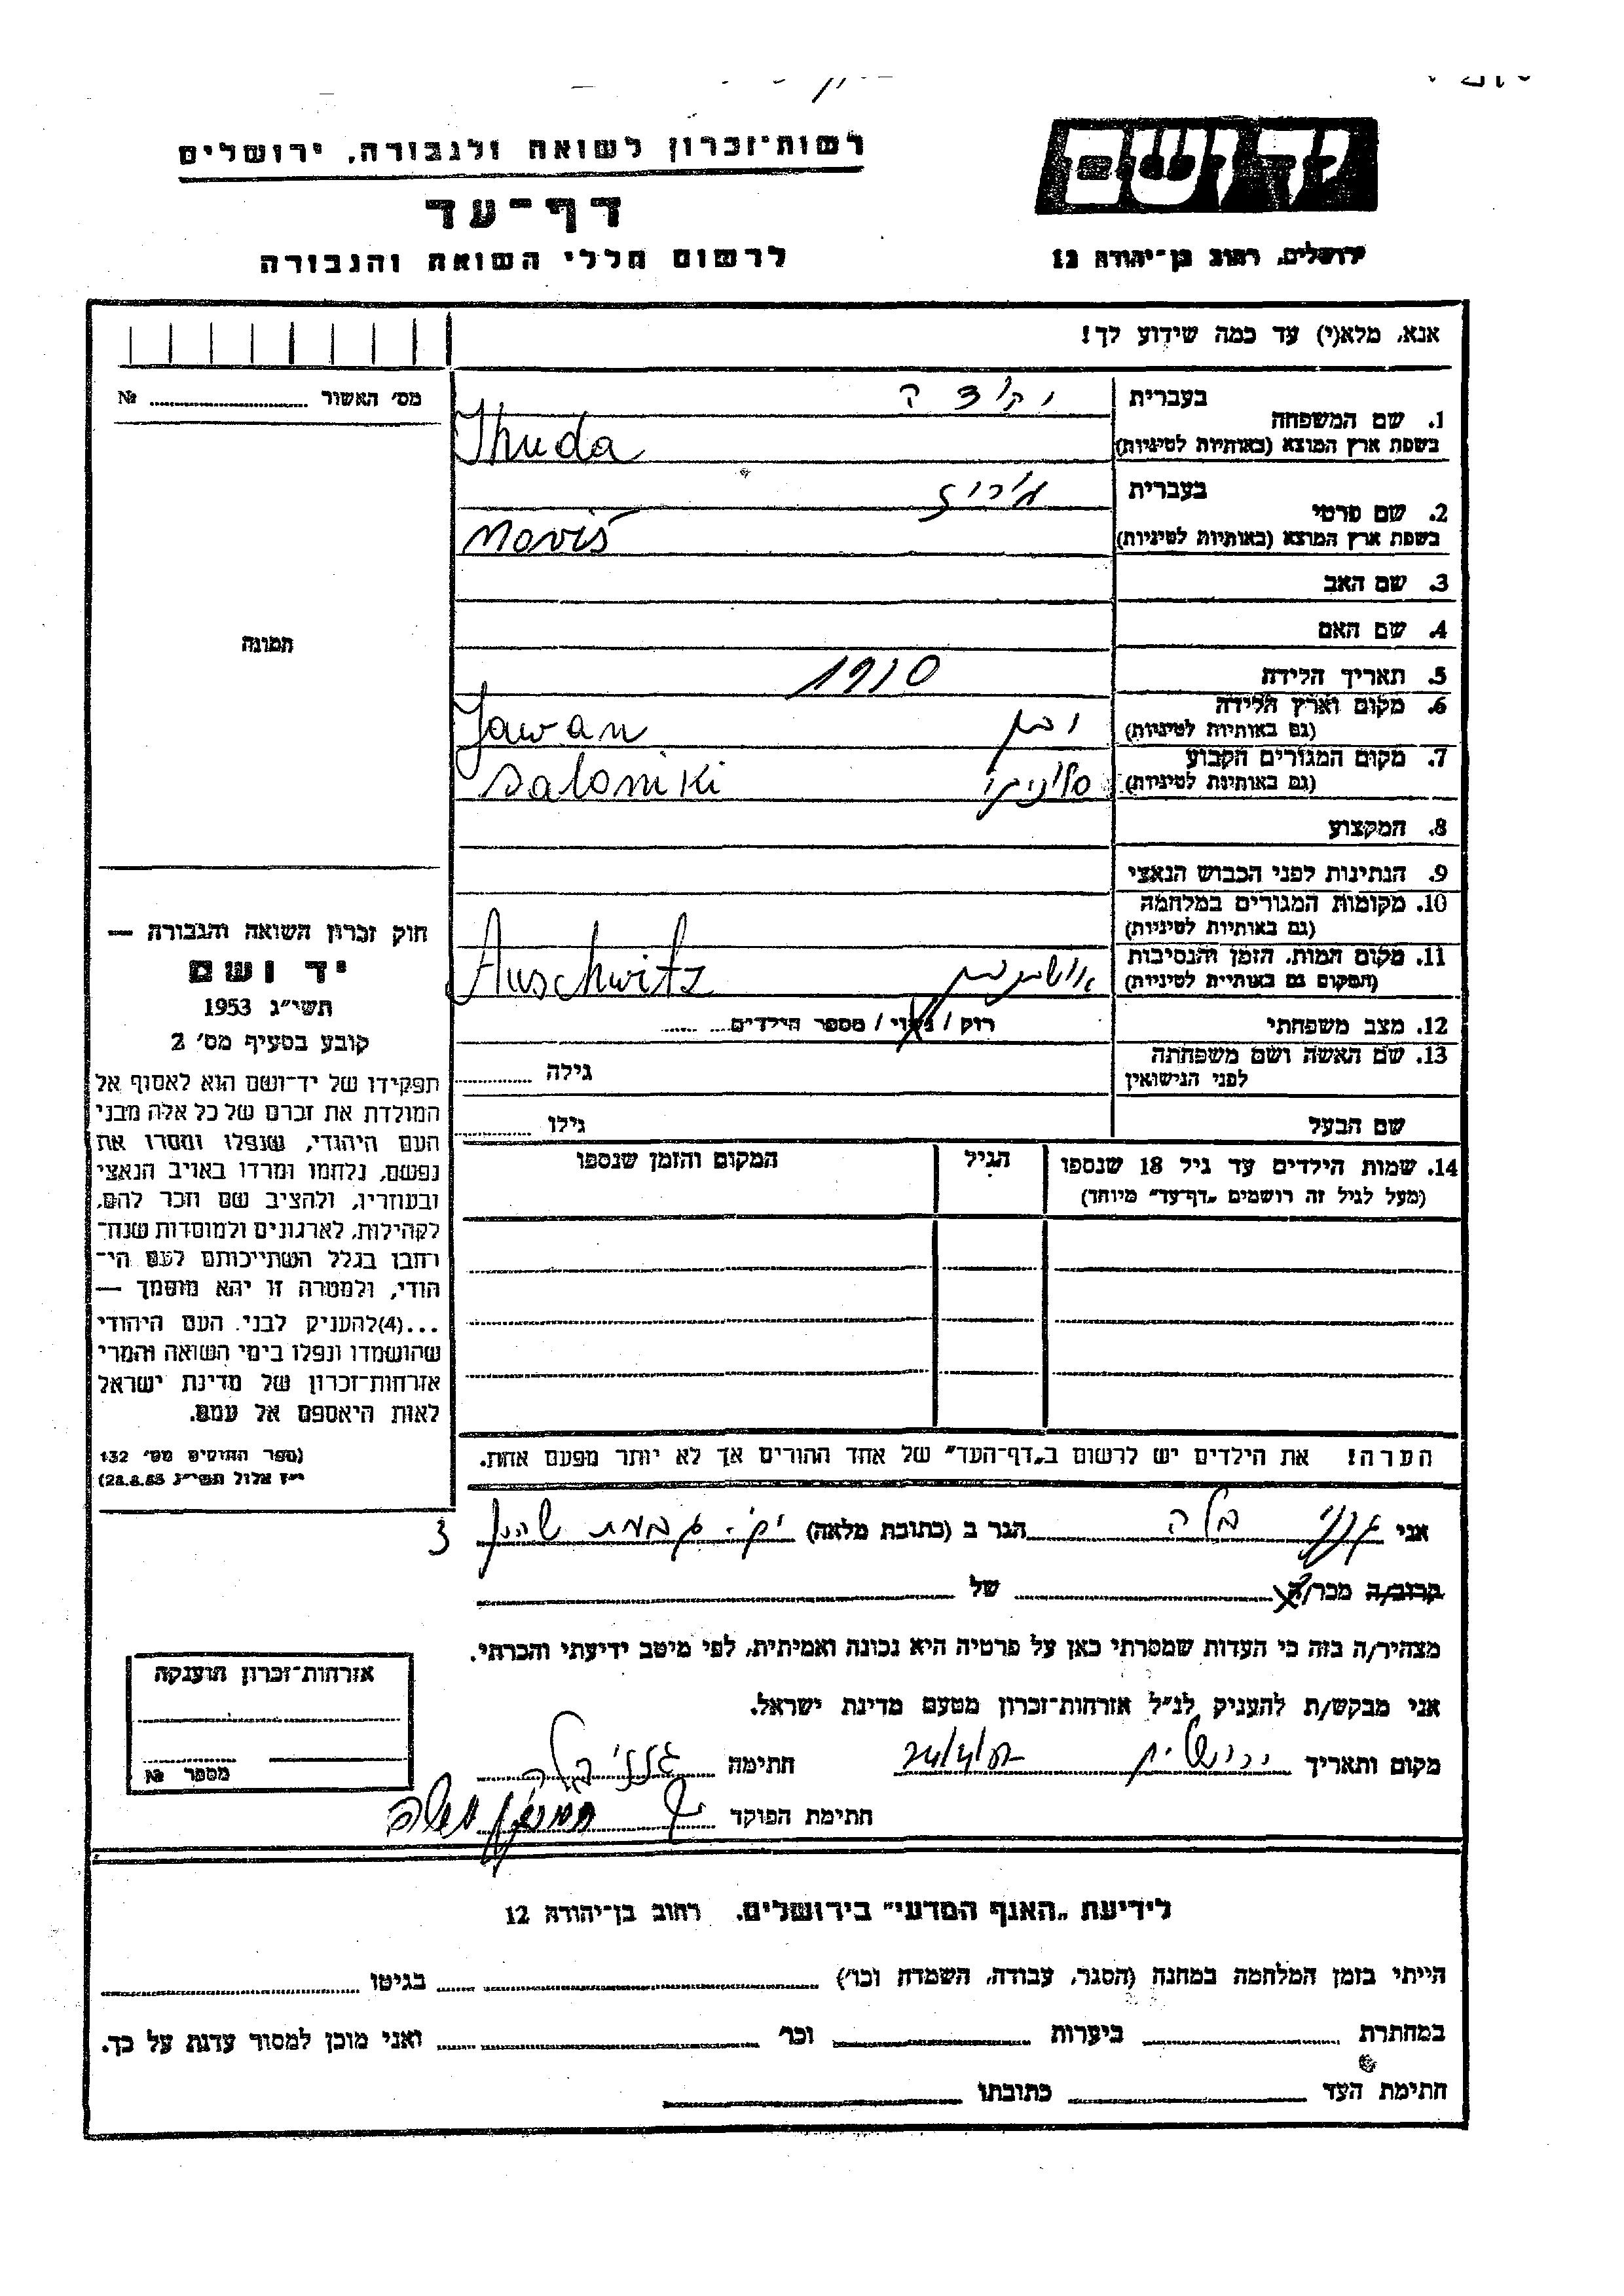 רשות־זכרון לשואה ולגבורה, ירושלים
דף־עד
לרשום חללי השואה והגבורה
יד ושם
ירושלים, רחוב בן־יהודה 12
אנא, מלא(י) עד כמה שידוע לך!
מס׳ האשור № 
1. שם המשפחה בעברית
בשפת ארץ המוצא (באותיות לטיניות) Ihuda
2. שם פרטי בעברית מוריס
בשפת ארץ המוצא (באותיות לטיניות) Moris
3. שם האב
4. שם האם
5. תאריך הלידה 1910
6. מקום וארץ הלידה (גם באותיות לטיניות) יון Jawan
7. מקום המגורים הקבוע (גם באותיות לטיניות) סלוניקי Saloniki
8. המקצוע
9. הנתינות לפני הכבוש הנאצי
10. מקומות המגורים במלחמה (גם באותיות לטיניות)
11. מקום המות, הזמן והנסיבות (המקום גם באותיית לטיניות) Auschwitz
12. מצב משפחתי רוק / נשוי / מספר הילדים
13. שם האשה ושם משפחתה לפני הנישואין גילה
שם הבעל גילו
14. שמות הילדים עד גיל 18 שנספו הגיל המקום והזמן שנספו
(מעל לגיל זה רושמים „דף־עד" מיוחד)
הערה! את הילדים יש לרשום ב„דף־העד" של אחד ההורים אך לא יותר מפעם אחת.
תמונה
חוק זכרון השואה והגבורה —
יד ושם
תשי״ג 1953
קובע בסעיף מס׳ 2
תפקידו של יד־ושם הוא לאסוף אל
המולדת את זכרם של כל אלה מבני
העם היהודי, שנפלו ומסרו את
נפשם, נלחמו ומרדו באויב הנאצי
ובעוזריו, ולהציב שם וזכר להם,
לקהילות, לארגונים ולמוסדות שנח־
רחבו בגלל השתייכותם לעם הי־
הודי, ולמטרה זו יהא מוסמך —
...(4)להעניק לבני העם היהודי
שהושמדו ונפלו בימי השואה והמרי
אזרחות־זכרון של מדינת ישראל
לאות היאספם אל עמם.
(ספר החוקים מס׳ 132
י״ז אלול תשי״ג 28.8.53)
אני בלה הגר ב (כתובת מלאה) 3
קרוב/ה מכר/ה של
מצהיר/ה בזה כי העדות שמסרתי כאן על פרטיה היא נכונה ואמיתית, לפי מיטב ידיעתי והכרתי.
אני מבקש/ת להעניק לנ״ל אזרחות־זכרון מטעם מדינת ישראל.
מקום ותאריך ירושלים חתימה בלה
חתימת הפוקד
אזרחות־זכרון הוענקה
מספר №
לידיעת „האגף המדעי" בירושלים, רחוב בן־יהודה 12
הייתי בזמן המלחמה במחנה (הסגר, עבודה, השמדה וכו׳) בגיטו
במחתרת ביערות וכו׳ ואני מוכן למסור עדות על כך.
חתימת העד כתובתו